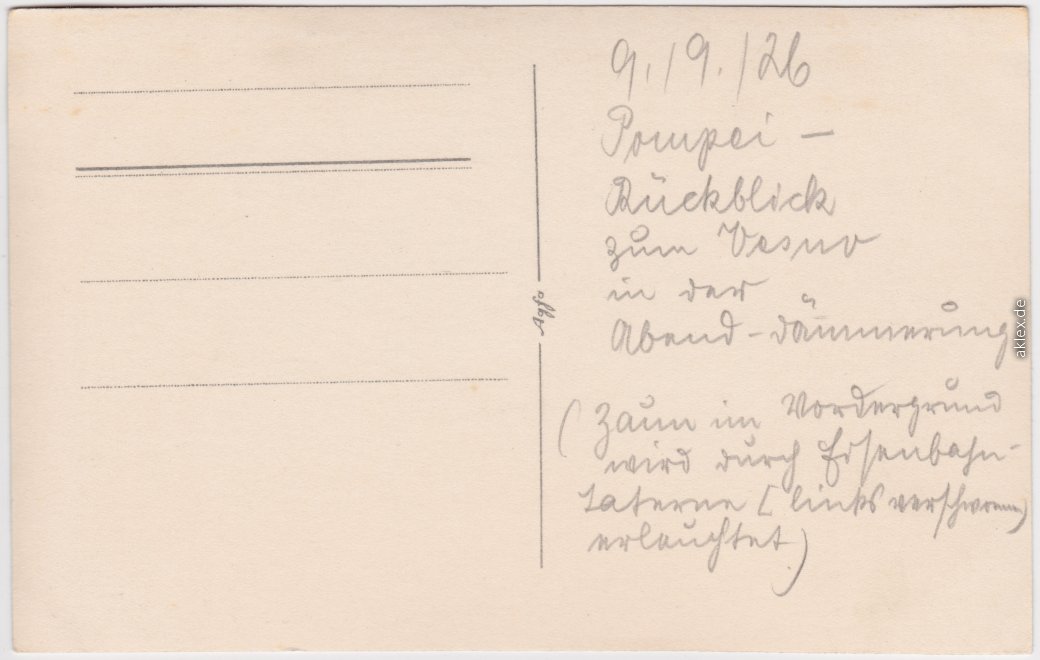 9./9./26
Pompei –
Rückblick
zum Vesuv
in der
Abend-dämmerung
(Zaun im Vordergrund
wird durch Eisenbahn-
Laterne (links
erleuchtet)
Agfa
aklex.de